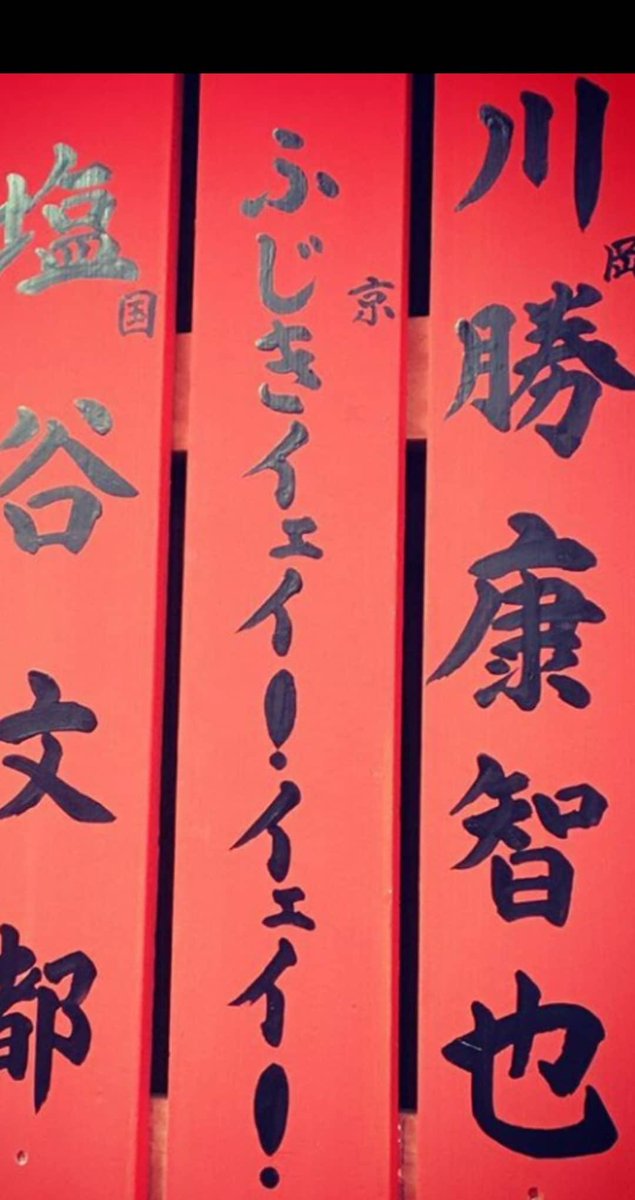 川勝康智也
岡
ふじきイェイ!イェイ!
京
塩谷文都
国